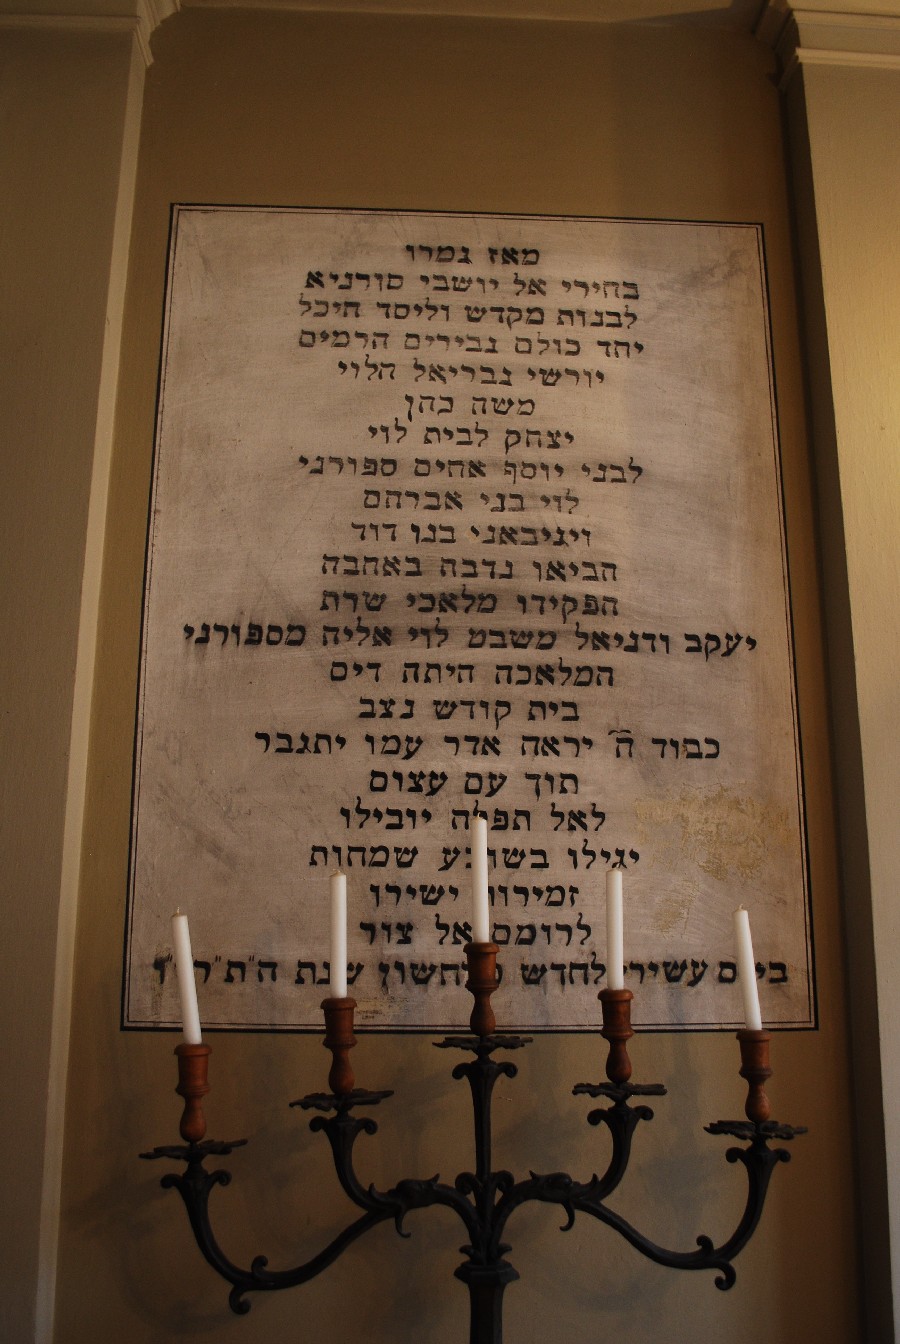 מאז גמרו
בחירי אל יושבי סורניא
לבנות מקדש וליסד היכל
יחד כולם גבירים הרמים
יורשי גבריאל הלוי
משה כהן
יצחק לבית לוי
לבני יוסף אחים ספורני
לוי בני אברהם
ויגיבאני בנו דוד
הביאו נדבה באהבה
הפקידו מלאכי שרת
יעקב ודניאל משבט לוי אליה מספורני
המלאכה היתה דים
בית קודש נצב
כבוד ה׳ יראה אדר עמו יתגבר
תוך עם עצום
לאל תפלה יובילו
יגילו בשובע שמחות
זמירות ישירו
לרומם אל צור
לחדש שנת